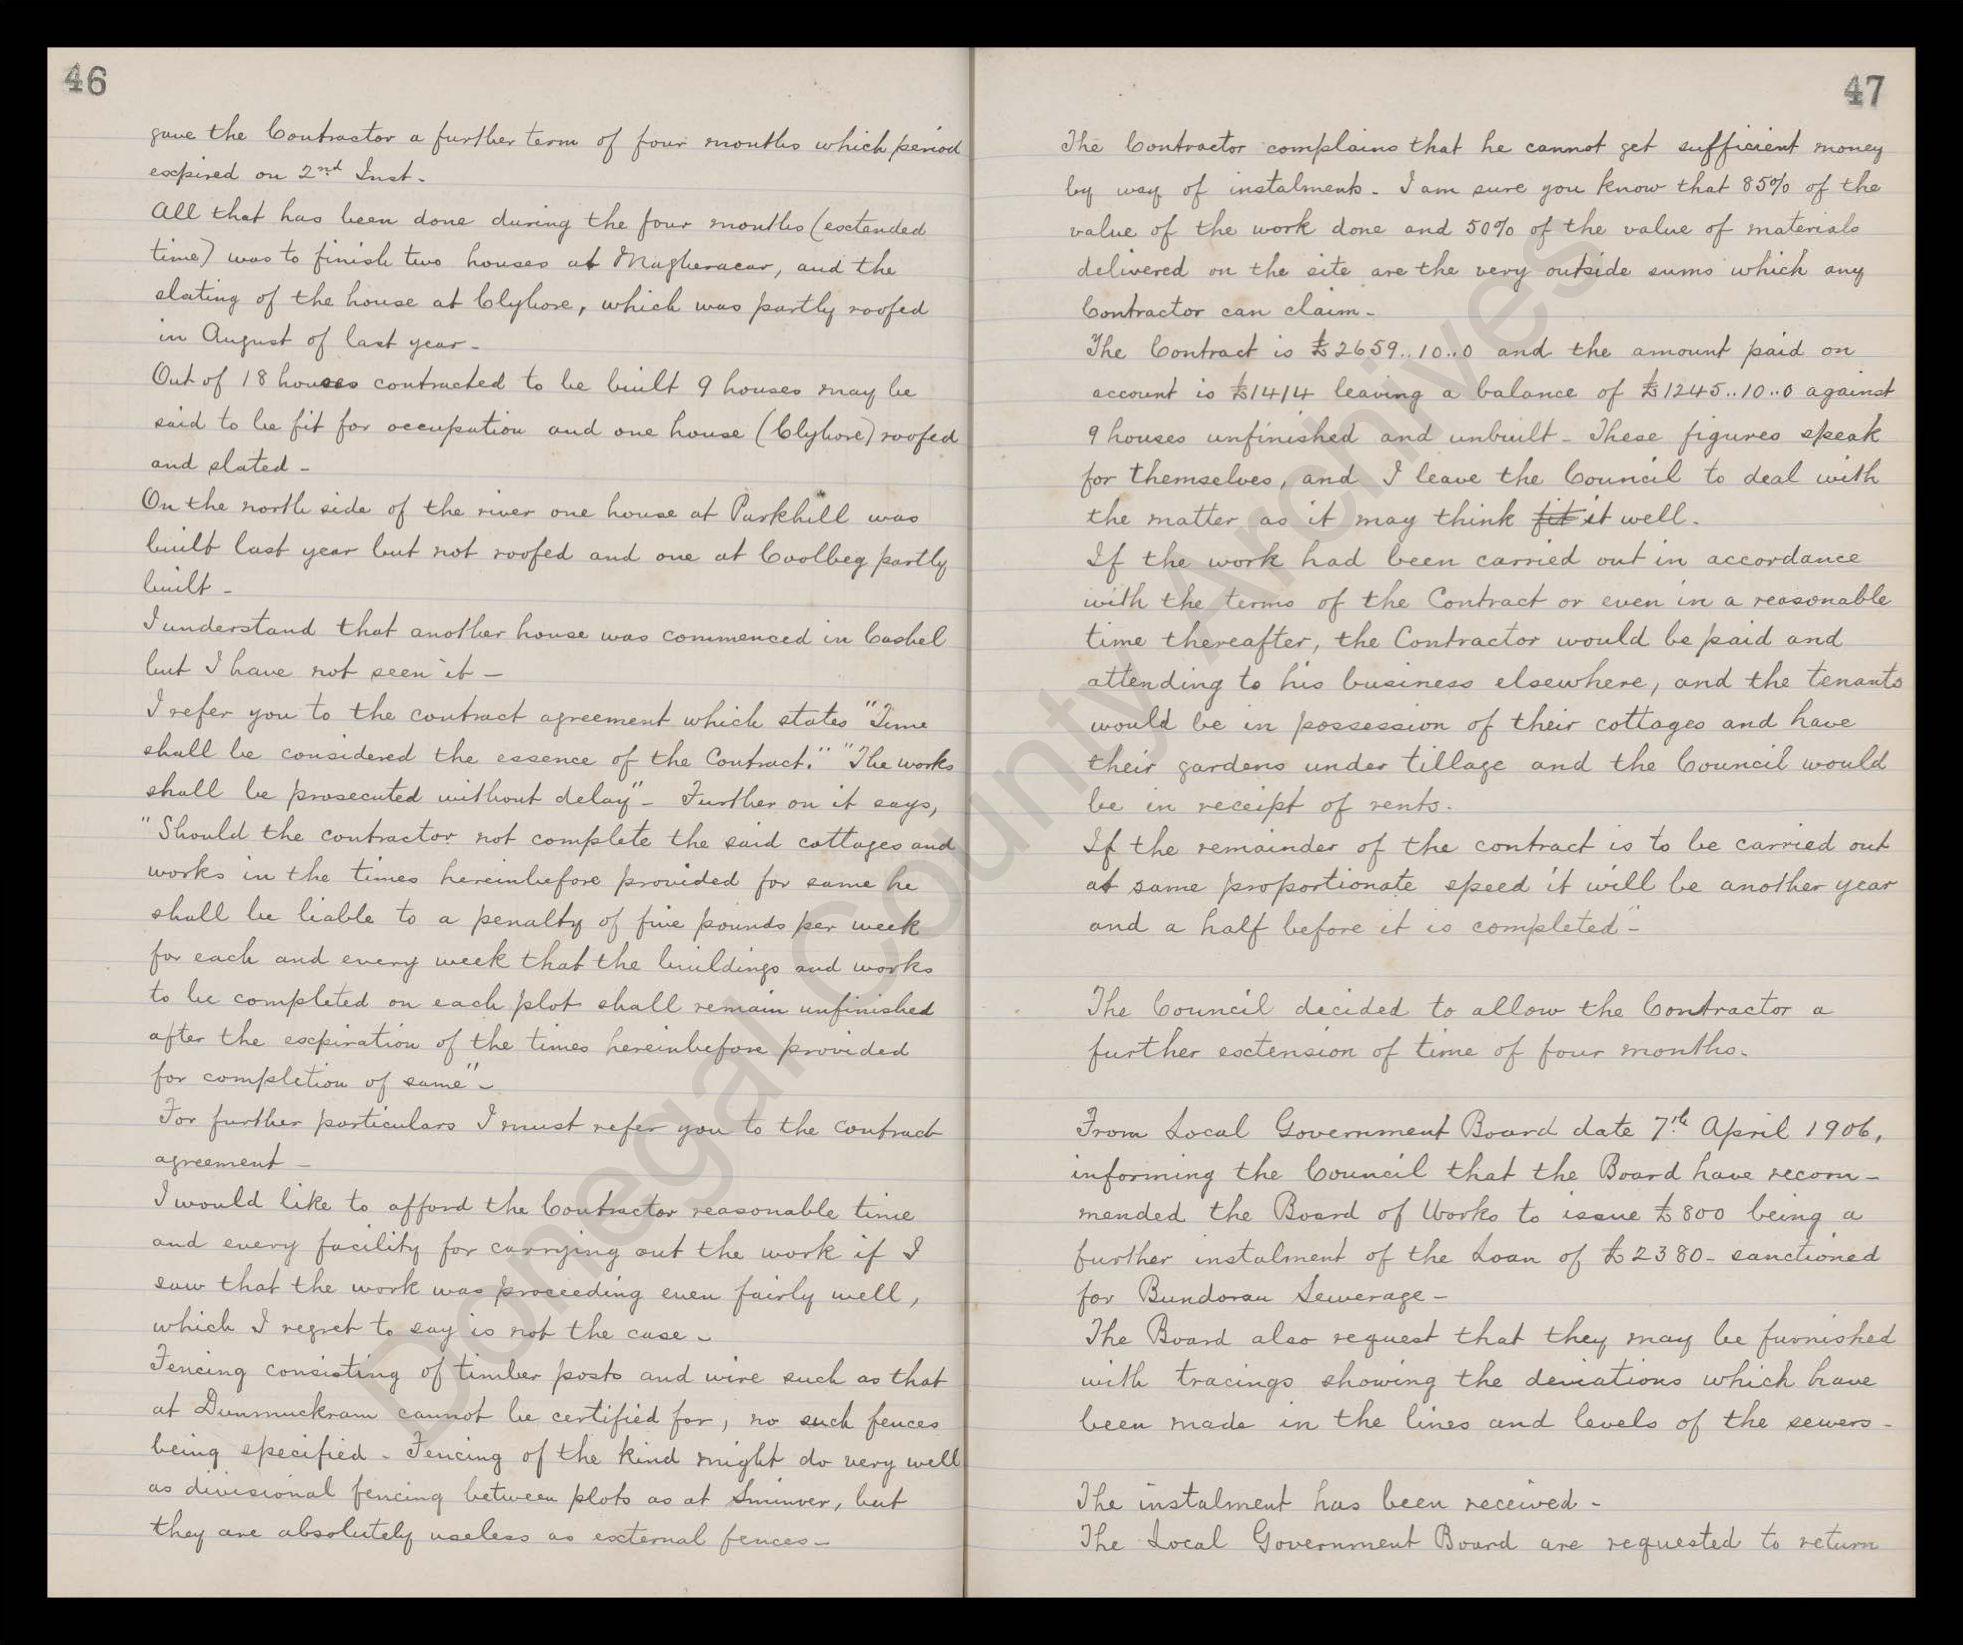 46
gave the Contractor a further term of four months which period
expired on 2nd Inst.
All that has been done during the four months (extended
time) was to finish two houses at Magheracar, and the
slating of the house at Clyhore, which was partly roofed
in August of last year.
Out of 18 houses contracted to be built 9 houses may be
said to be fit for occupation and one house (Clyhore) roofed
and slated -
On the north side of the river one house at Parkhill was
built last year but not roofed and one at Coolbeg partly
built -
I understand that another house was commenced in Cashel
but I have not seen it -
I refer you to the contract agreement which states "Time
shall be considered the essence of the Contract." "The works
shall be prosecuted without delay" - Further on it says,
"Should the contractor not complete the said cottages and
works in the times hereinbefore provided for same he
shall be liable to a penalty of five pounds per week
for each and every week that the buildings and works
to be completed on each plot shall remain unfinished
after the expiration of the times hereinbefore provided
for completion of same" -
For further particulars I must refer you to the contract
agreement -
I would like to afford the Contractor reasonable time
and every facility for carrying out the work if I
saw that the work was proceeding even fairly well,
which I regret to say is not the case -
Fencing consisting of timber posts and wire such as that
at Dunmuckram cannot be certified for, no such fences
being specified - Fencing of the kind might do very well
as divisional fencing between plots as at Sminver, but
they are absolutely useless as external fences -
47
The Contractor complains that he cannot get sufficient money
by way of instalments - I am sure you know that 85% of the
value of the work done and 50% of the value of materials
delivered on the site are the very outside sums which any
Contractor can claim -
The Contract is £2659..10..0 and the amount paid on
account is £1414 leaving a balance of £1245..10..0 against
9 houses unfinished and unbuilt - These figures speak
for themselves, and I leave the Council to deal with
the matter as it may think fit it well.
If the work had been carried out in accordance
with the terms of the Contract or even in a reasonable
time thereafter, the Contractor would be paid and
attending to his business elsewhere, and the tenants
would be in possession of their cottages and have
their gardens under tillage and the Council would
be in receipt of rents.
If the remainder of the contract is to be carried out
at same proportionate speed it will be another year
and a half before it is completed" -
The Council decided to allow the Contractor a
further extension of time of four months.
From Local Government Board date 7th April 1906,
informing the Council that the Board have recom-
mended the Board of Works to issue £800 being a
further instalment of the Loan of £2380 - sanctioned
for Bundoran Sewerage -
The Board also request that they may be furnished
with tracings showing the deviations which have
been made in the lines and levels of the sewers -
The instalment has been received -
The Local Government Board are requested to return
Donegal County Archives